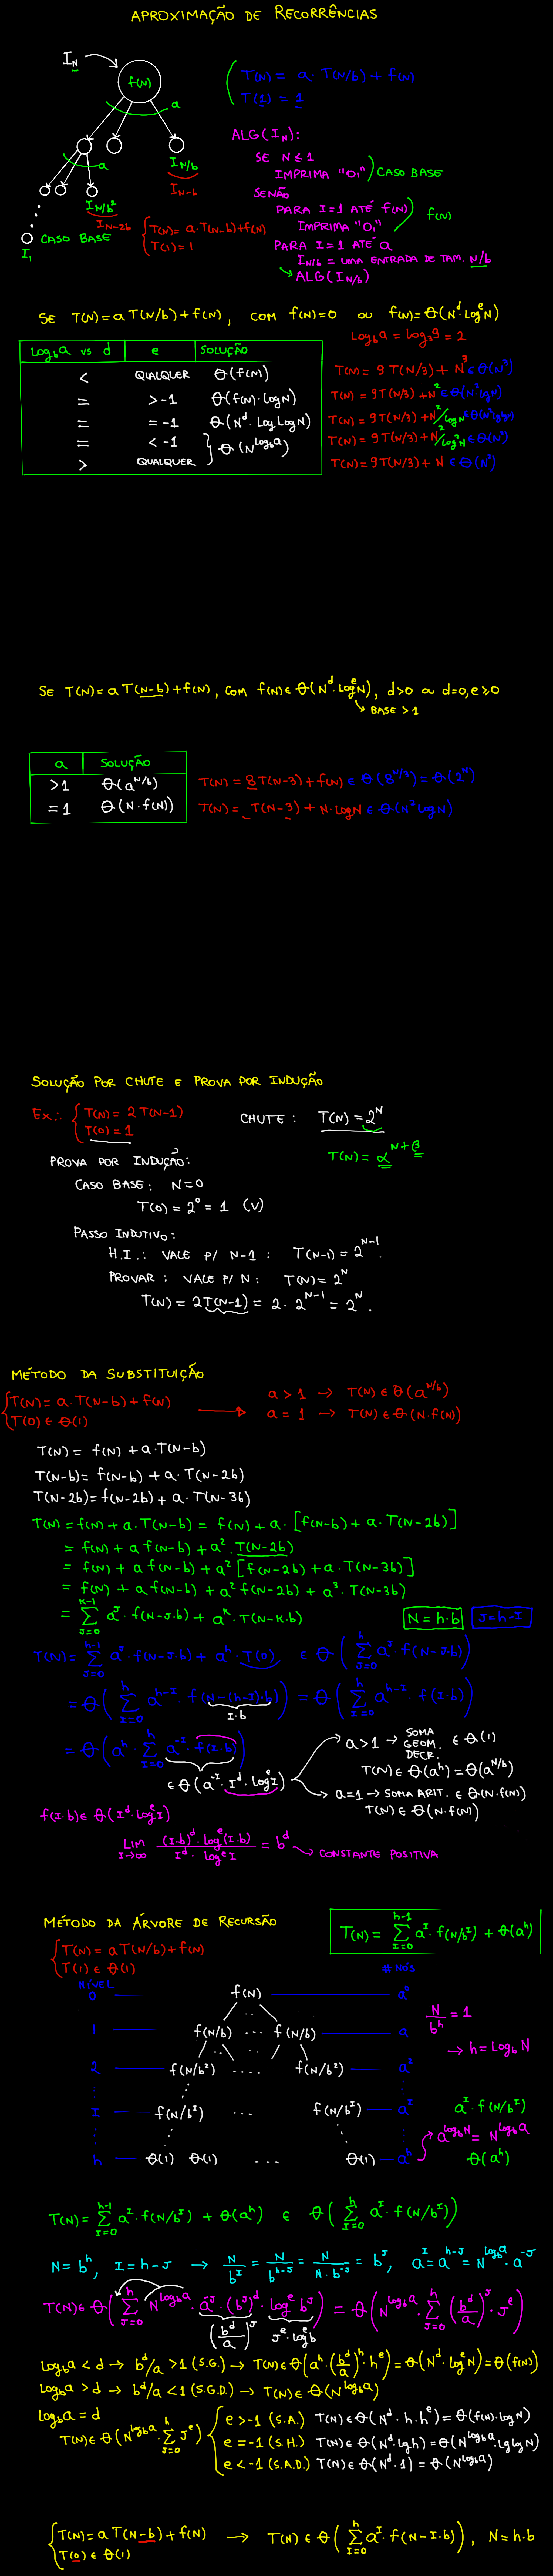 APROXIMAÇÃO DE RECORRÊNCIAS
I_N
f(N)
a
a
I_{N/b}
I_{N-b}
I_{N/b²}
I_{N-2b}
CASO BASE
I_1
T(N) = a·T(N-b)+f(N)
T(1) = 1
T(N) = a·T(N/b)+f(N)
T(1) = 1
ALG(I_N):
SE N ≤ 1
IMPRIMA "OI" CASO BASE
SENÃO
PARA I=1 ATÉ f(N)
IMPRIMA "OI"
f(N)
PARA I=1 ATÉ a
I_{N/b} = UMA ENTRADA DE TAM. N/b
ALG(I_{N/b})
SE T(N)=aT(N/b)+f(N), COM f(N)=0 OU f(N)=Θ(N^d·log^e N)
log_b a = log_3 9 = 2
log_b a vs d e SOLUÇÃO
< QUALQUER Θ(f(N))
= >-1 Θ(f(N)·logN)
= =-1 Θ(N^d·loglogN)
= <-1
> QUALQUER
Θ(N^{log_b a})
T(N)= 9T(N/3)+ N³ ∈ Θ(N³)
T(N)= 9T(N/3)+N² ∈ Θ(N² logN)
T(N)= 9T(N/3)+N²/logN ∈ Θ(N² loglogN)
T(N)= 9T(N/3)+N²/log²N ∈ Θ(N²)
T(N)= 9T(N/3)+ N ∈ Θ(N²)
SE T(N)=aT(N-b)+f(N), COM f(N)∈ Θ(N^d·log^e N), d>0 ou d=0,e≥0
BASE > 1
a SOLUÇÃO
>1 Θ(a^{N/b})
=1 Θ(N·f(N))
T(N) = 8T(N-3)+f(N) ∈ Θ(8^{N/3}) = Θ(2^N)
T(N) = T(N-3) + N·logN ∈ Θ(N² logN)
SOLUÇÃO POR CHUTE E PROVA POR INDUÇÃO
Ex.: T(N)= 2T(N-1)
T(0) = 1
CHUTE: T(N) = 2^N
T(N) = α^{N+β}
PROVA POR INDUÇÃO:
CASO BASE: N=0
T(0) = 2⁰ = 1 (V)
PASSO INDUTIVO:
H.I.: VALE P/ N-1: T(N-1) = 2^{N-1}.
PROVAR: VALE P/ N: T(N)= 2^N
T(N) = 2T(N-1) = 2·2^{N-1} = 2^N.
MÉTODO DA SUBSTITUIÇÃO
T(N) = a·T(N-b)+f(N)
T(0) ∈ Θ(1)
a > 1 → T(N) ∈ Θ(a^{N/b})
a = 1 → T(N) ∈ Θ(N·f(N))
T(N) = f(N) + a·T(N-b)
T(N-b) = f(N-b) + a·T(N-2b)
T(N-2b) = f(N-2b) + a·T(N-3b)
T(N) = f(N) + a·T(N-b) = f(N) + a·[f(N-b) + a·T(N-2b)]
= f(N) + af(N-b) + a²·T(N-2b)
= f(N) + af(N-b) + a²[f(N-2b) + a·T(N-3b)]
= f(N) + af(N-b) + a²f(N-2b) + a³·T(N-3b)
= Σ_{J=0}^{K-1} a^J·f(N-J·b) + a^K·T(N-K·b)
N = h·b
J = h-I
T(N) = Σ_{J=0}^{h-1} a^J·f(N-J·b) + a^h·T(0) ∈ Θ(Σ_{J=0}^{h} a^J·f(N-J·b))
= Θ(Σ_{I=0}^{h} a^{h-I}·f(N-(h-I)·b)) = Θ(Σ_{I=0}^{h} a^{h-I}·f(I·b))
I·b
= Θ(a^h·Σ_{I=0}^{h} a^{-I}·f(I·b))
∈ Θ(a^{-I}·I^d·log^e I)
a>1 → SOMA GEOM. DECR. ∈ Θ(1)
T(N) ∈ Θ(a^h) = Θ(a^{N/b})
a=1 → SOMA ARIT. ∈ Θ(N·f(N))
T(N) ∈ Θ(N·f(N))
f(I·b) ∈ Θ(I^d·log^e I)
LIM_{I→∞} (I·b)^d·log^e(I·b) / I^d·log^e I = b^d → CONSTANTE POSITIVA
MÉTODO DA ÁRVORE DE RECURSÃO
T(N) = Σ_{I=0}^{h-1} a^I·f(N/b^I) + Θ(a^h)
T(N) = aT(N/b)+f(N)
T(1) ∈ Θ(1)
NÍVEL # NÓS
0 f(N) a⁰
1 f(N/b) ... f(N/b) a
2 f(N/b²) .... f(N/b²) a²
I f(N/b^I) ... f(N/b^I) a^I
h Θ(1) Θ(1) ... Θ(1) a^h
N/b^h = 1
→ h = log_b N
a^I·f(N/b^I)
a^{log_b N} = N^{log_b a}
Θ(a^h)
T(N) = Σ_{I=0}^{h-1} a^I·f(N/b^I) + Θ(a^h) ∈ Θ(Σ_{I=0}^{h} a^I·f(N/b^I))
N = b^h, I = h-J → N/b^I = N/b^{h-J} = N/N·b^{-J} = b^J, a^I = a^{h-J} = N^{log_b a}·a^{-J}
T(N) ∈ Θ(Σ_{J=0}^{h} N^{log_b a}·a^{-J}·(b^J)^d·log^e b^J) = Θ(N^{log_b a}·Σ_{J=0}^{h} (b^d/a)^J·J^e)
(b^d/a)^J J^e·log^e b
log_b a < d → b^d/a > 1 (S.G.) → T(N) ∈ Θ(a^h·(b^d/a)^h·h^e) = Θ(N^d·log^e N) = Θ(f(N))
log_b a > d → b^d/a < 1 (S.G.D.) → T(N) ∈ Θ(N^{log_b a})
log_b a = d
T(N) ∈ Θ(N^{log_b a}·Σ_{J=0}^{h} J^e)
e > -1 (S.A.) T(N) ∈ Θ(N^d·h·h^e) = Θ(f(N)·logN)
e = -1 (S.H.) T(N) ∈ Θ(N^d·lg h) = Θ(N^{log_b a}·lg lg N)
e < -1 (S.A.D.) T(N) ∈ Θ(N^d·1) = Θ(N^{log_b a})
T(N) = aT(N-b)+f(N)
T(0) ∈ Θ(1)
→ T(N) ∈ Θ(Σ_{I=0}^{h} a^I·f(N-I·b)), N = h·b